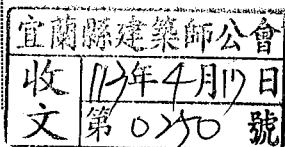 宜蘭縣建築師公會
收 113年4月17日
文 第0250號